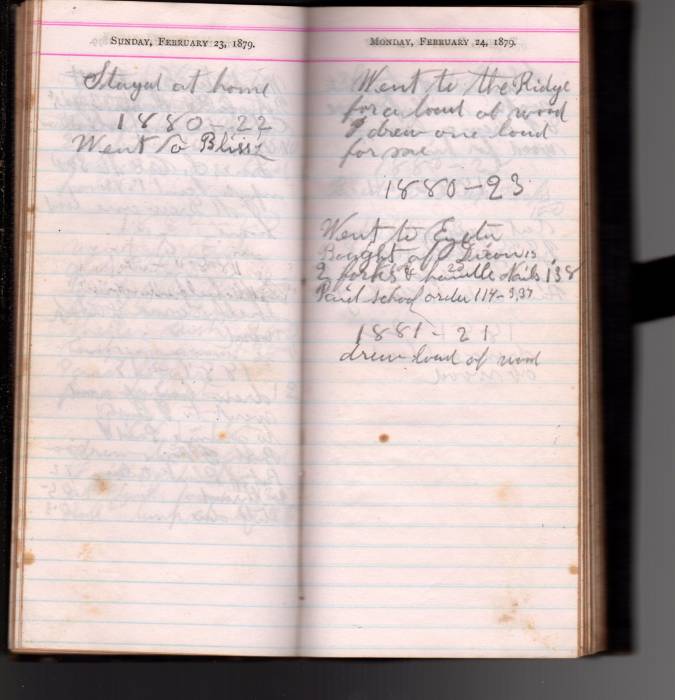 SUNDAY, FEBRUARY 23, 1879.
Stayed at home
1880-22
Went to Bliss
MONDAY, FEBRUARY 24, 1879.
Went to the Ridge
for a load of wood
& drew one load
for
1880-23
Went to
Bought of
2 forks & handle Nails 1.38
Paid school order 114-3,37
1881-21
drew load of wood